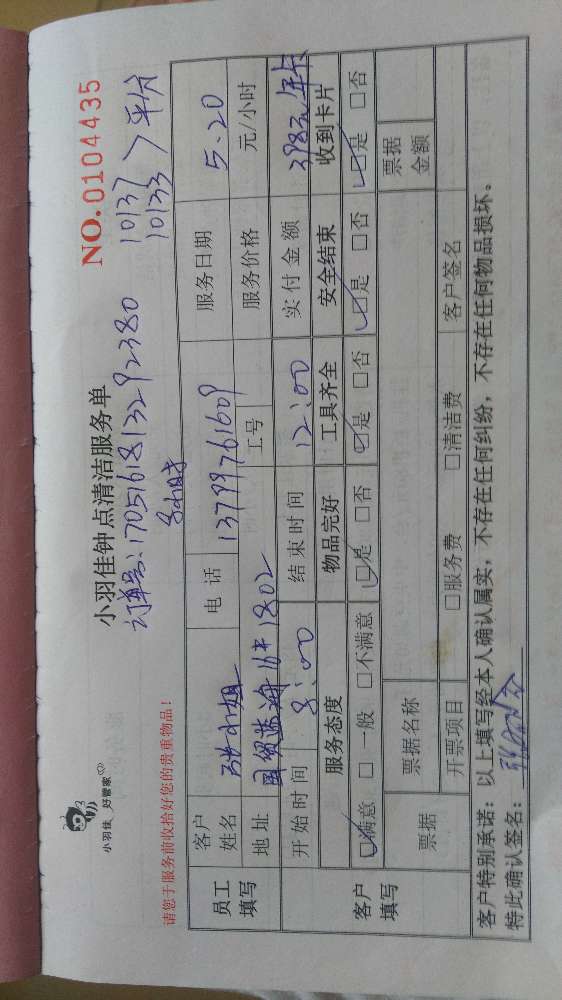 小羽佳 好管家
小羽佳钟点清洁服务单
NO.0104435
订单号:1705161813292380
10137
10133 > 平分
请您于服务前收拾好您的贵重物品!
员工填写
客户姓名 张小姐 电话 13799761609 服务日期 5.20
地址 国贸蓝海 16# 1802 工号 服务价格 元/小时
开始时间 8:00 结束时间 12:00 实付金额 398元/年卡
客户填写
服务态度 物品完好 工具齐全 安全结束 收到卡片
☑满意 □一般 □不满意 ☑是 □否 ☑是 □否 ☑是 □否 ☑是 □否
票据 票据名称 票据金额
开票项目 □服务费 □清洁费 客户签名
客户特别承诺:以上填写经本人确认属实,不存在任何纠纷,不存在任何物品损坏。
特此确认签名: